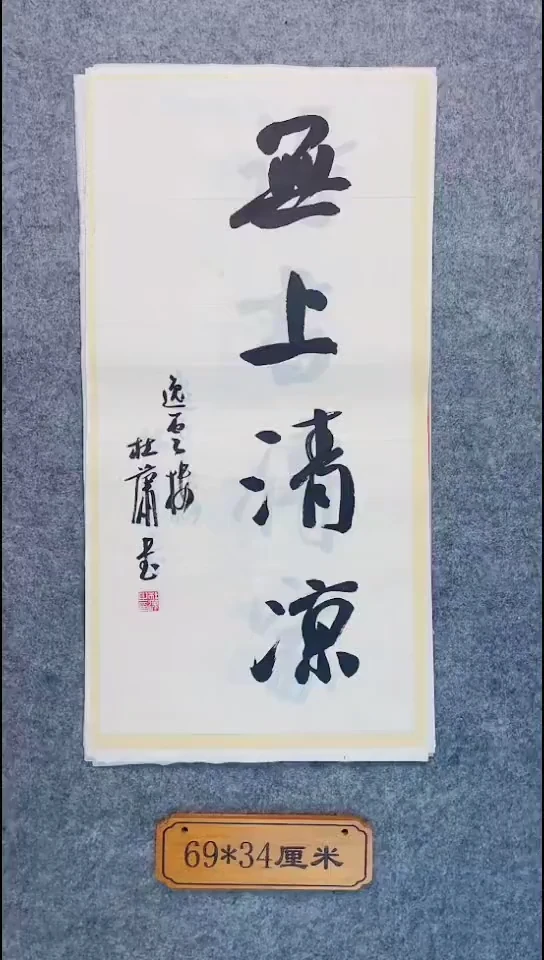 無上清凉
逸雲樓
杜蕭書
69*34厘米